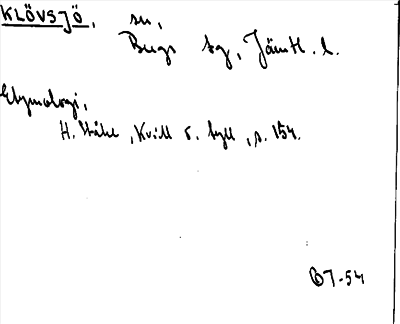 KLÖVSJÖ, sn,
Bergs tg, Jämtl. l.
Etymologi,
H. Ståhl, Kvill o. tyll, s. 154.
OT-54